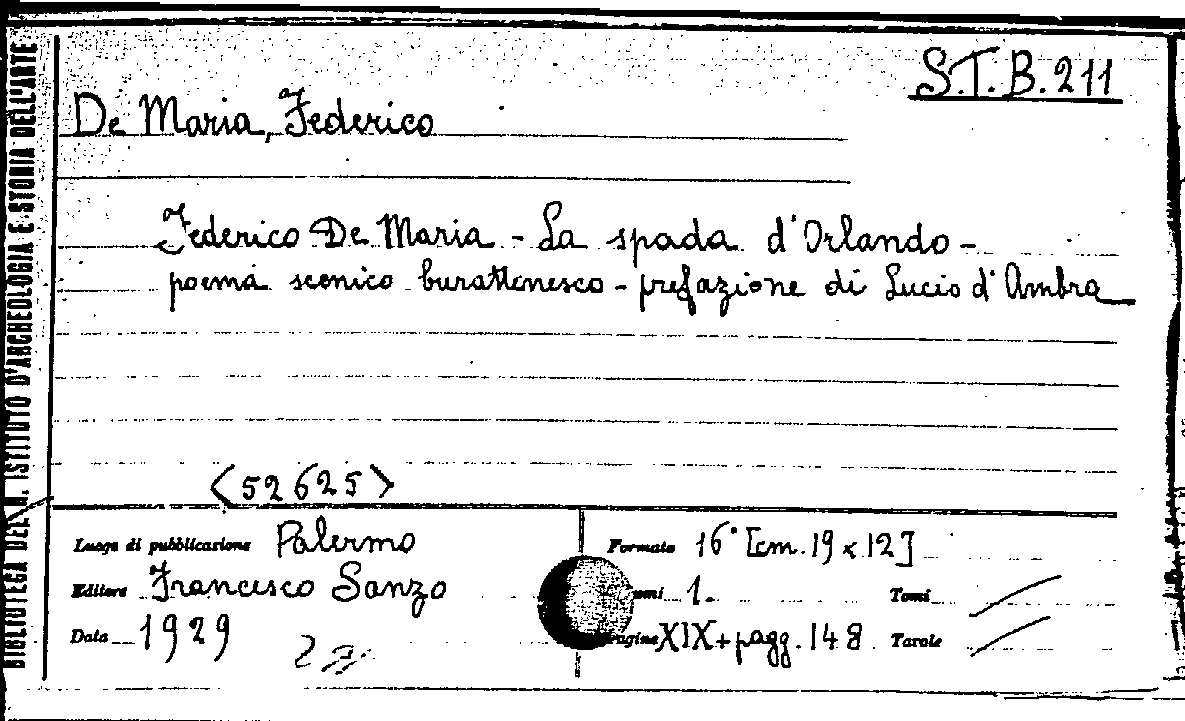 BIBLIOTECA DEL R. ISTITUTO D'ARCHEOLOGIA E STORIA DELL'ARTE
S.T.B.211
De Maria, Federico
Federico De Maria - La spada d'Orlando -
poema scenico burattenesco - prefazione di Lucio d'Ambra
<52625>
Luogo di pubblicazione Palermo
Formato 16° [cm. 19 x 12]
Editore Francesco Sanzo
umi 1.
Tomi
Data 1929
agine XIX + pagg. 148
Tavole